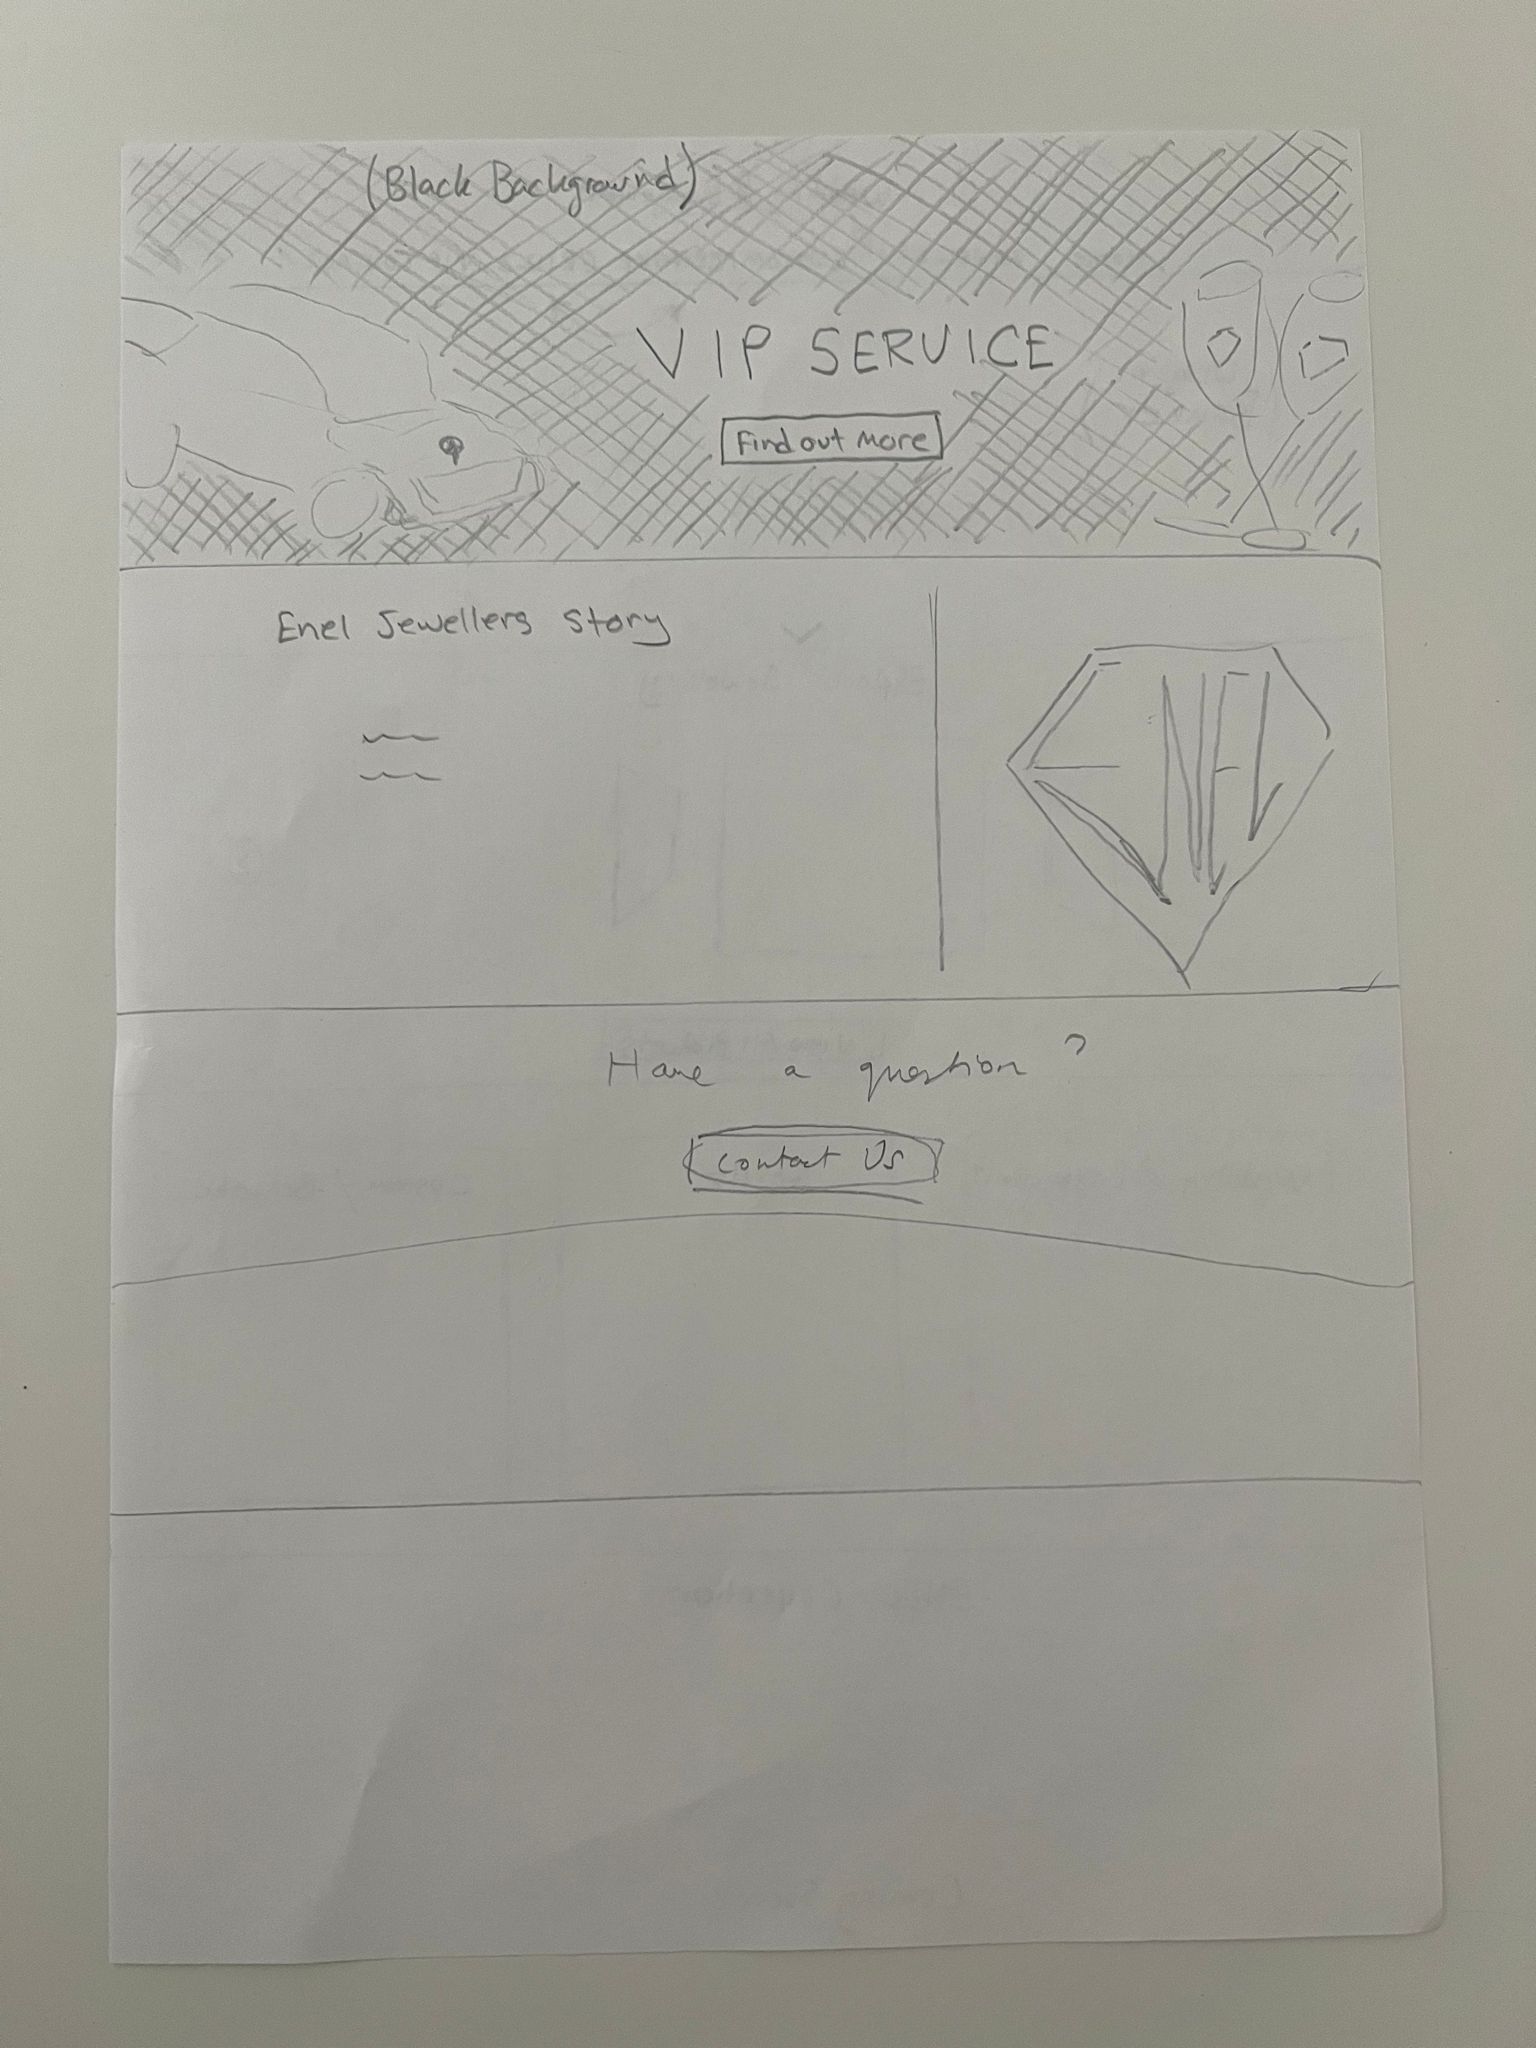 (Black Background)
VIP SERVICE
Find out More
Enel Jewellers Story
ENEL
Have a question?
Contact Us